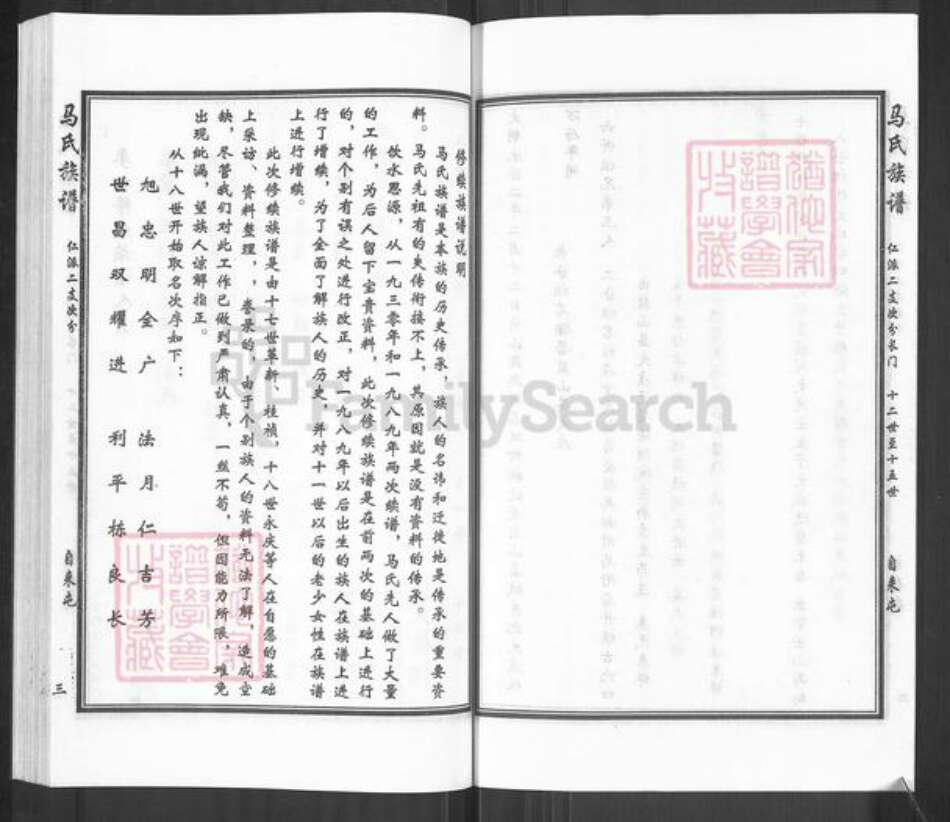 马氏族谱 仁派二支次分长门 十二世至十五世 自来屯
修续族谱说明
马氏族谱是本族的历史传承，族人的名讳和迁徙地是传承的重要资
料。马氏先祖有的失传衔接不上，其原因就是没有资料的传承。
饮水思源，从一九三零年和一九八九年两次续谱，马氏先人做了大量
的工作，为后人留下宝贵资料，此次修续族谱是在前两次的基础上进行
的，对个别有误之处进行改正，对一九八九年以后出生的族人在族谱上进
行了增续，为了全面了解族人的历史，并对十一世以后的老少女性在族谱
上进行增续。
此次修续族谱是由十七世革新、桂祯，十八世永庆等人在自愿的基础
上采访、资料整理，卷录的，由于个别族人的资料无法了解，造成空
缺，尽管我们对此工作已做到严肃认真，一丝不苟，但因能力所限，难免
出现纰漏，望族人谅解指正。
从十八世开始取名次序如下：
旭忠明全广 法月仁吉芳
世昌双耀进 利平栋良长
马氏族谱 仁派二支次分长门 自来屯 三
譜學會
收藏
譜學會
收藏
FamilySearch